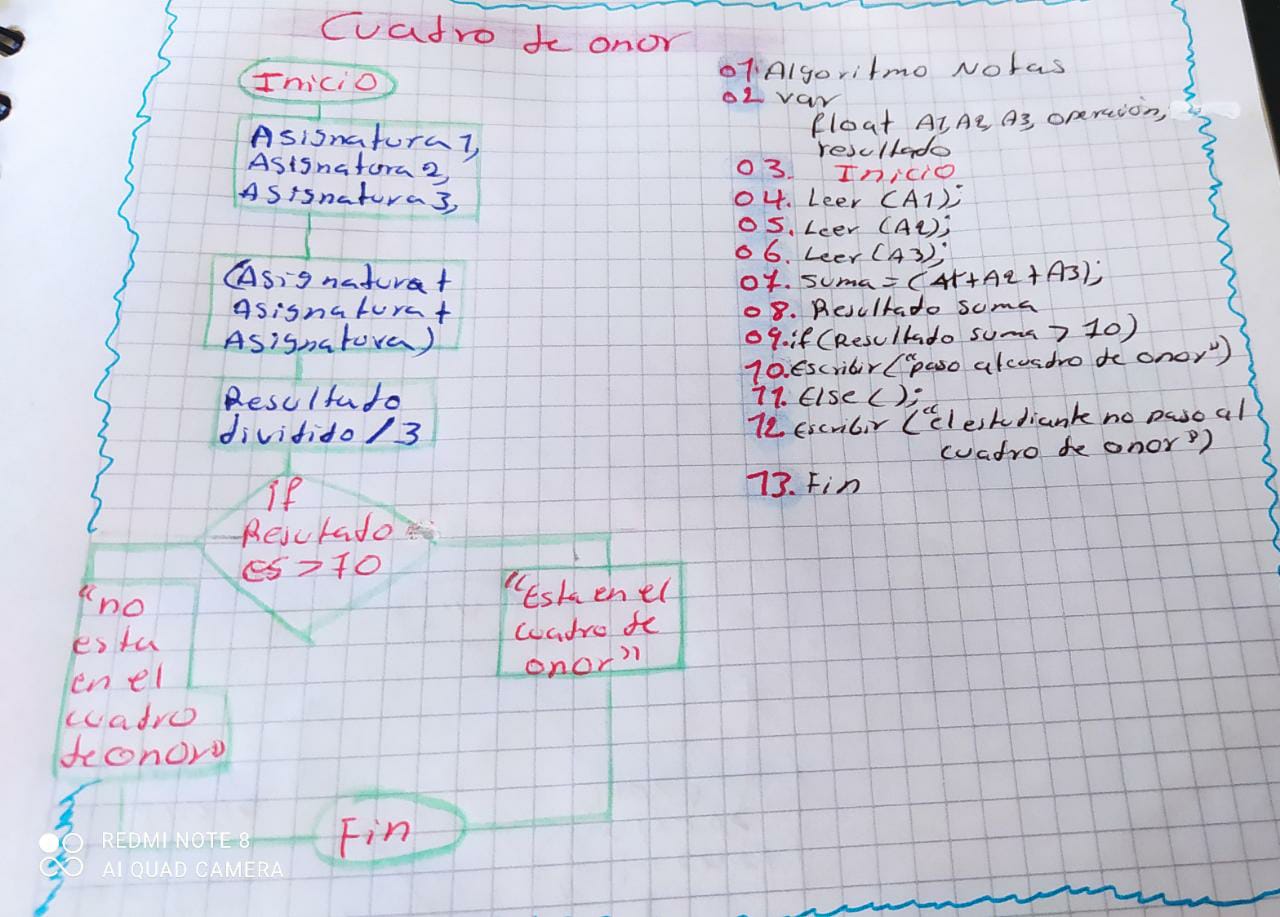 Cuadro de onor
Inicio
Asignatura 1,
Asignatura 2,
Asignatura 3,
(Asignatura +
Asignatura +
Asignatura)
Resultado
dividido / 3
if
Resultado
es > 10
"no
esta
en el
cuadro
de onor"
"Esta en el
cuadro de
onor"
Fin
01 Algoritmo Notas
02 var
float A1, A2, A3, operación,
resultado
03. Inicio
04. Leer (A1);
05. Leer (A2);
06. Leer (A3);
07. suma = (A1+A2+A3);
08. Resultado suma
09. if (Resultado suma > 10)
10. escribir ("paso al cuadro de onor")
11. Else ();
12. escribir ("el estudiante no paso al
cuadro de onor")
13. Fin
REDMI NOTE 8
AI QUAD CAMERA